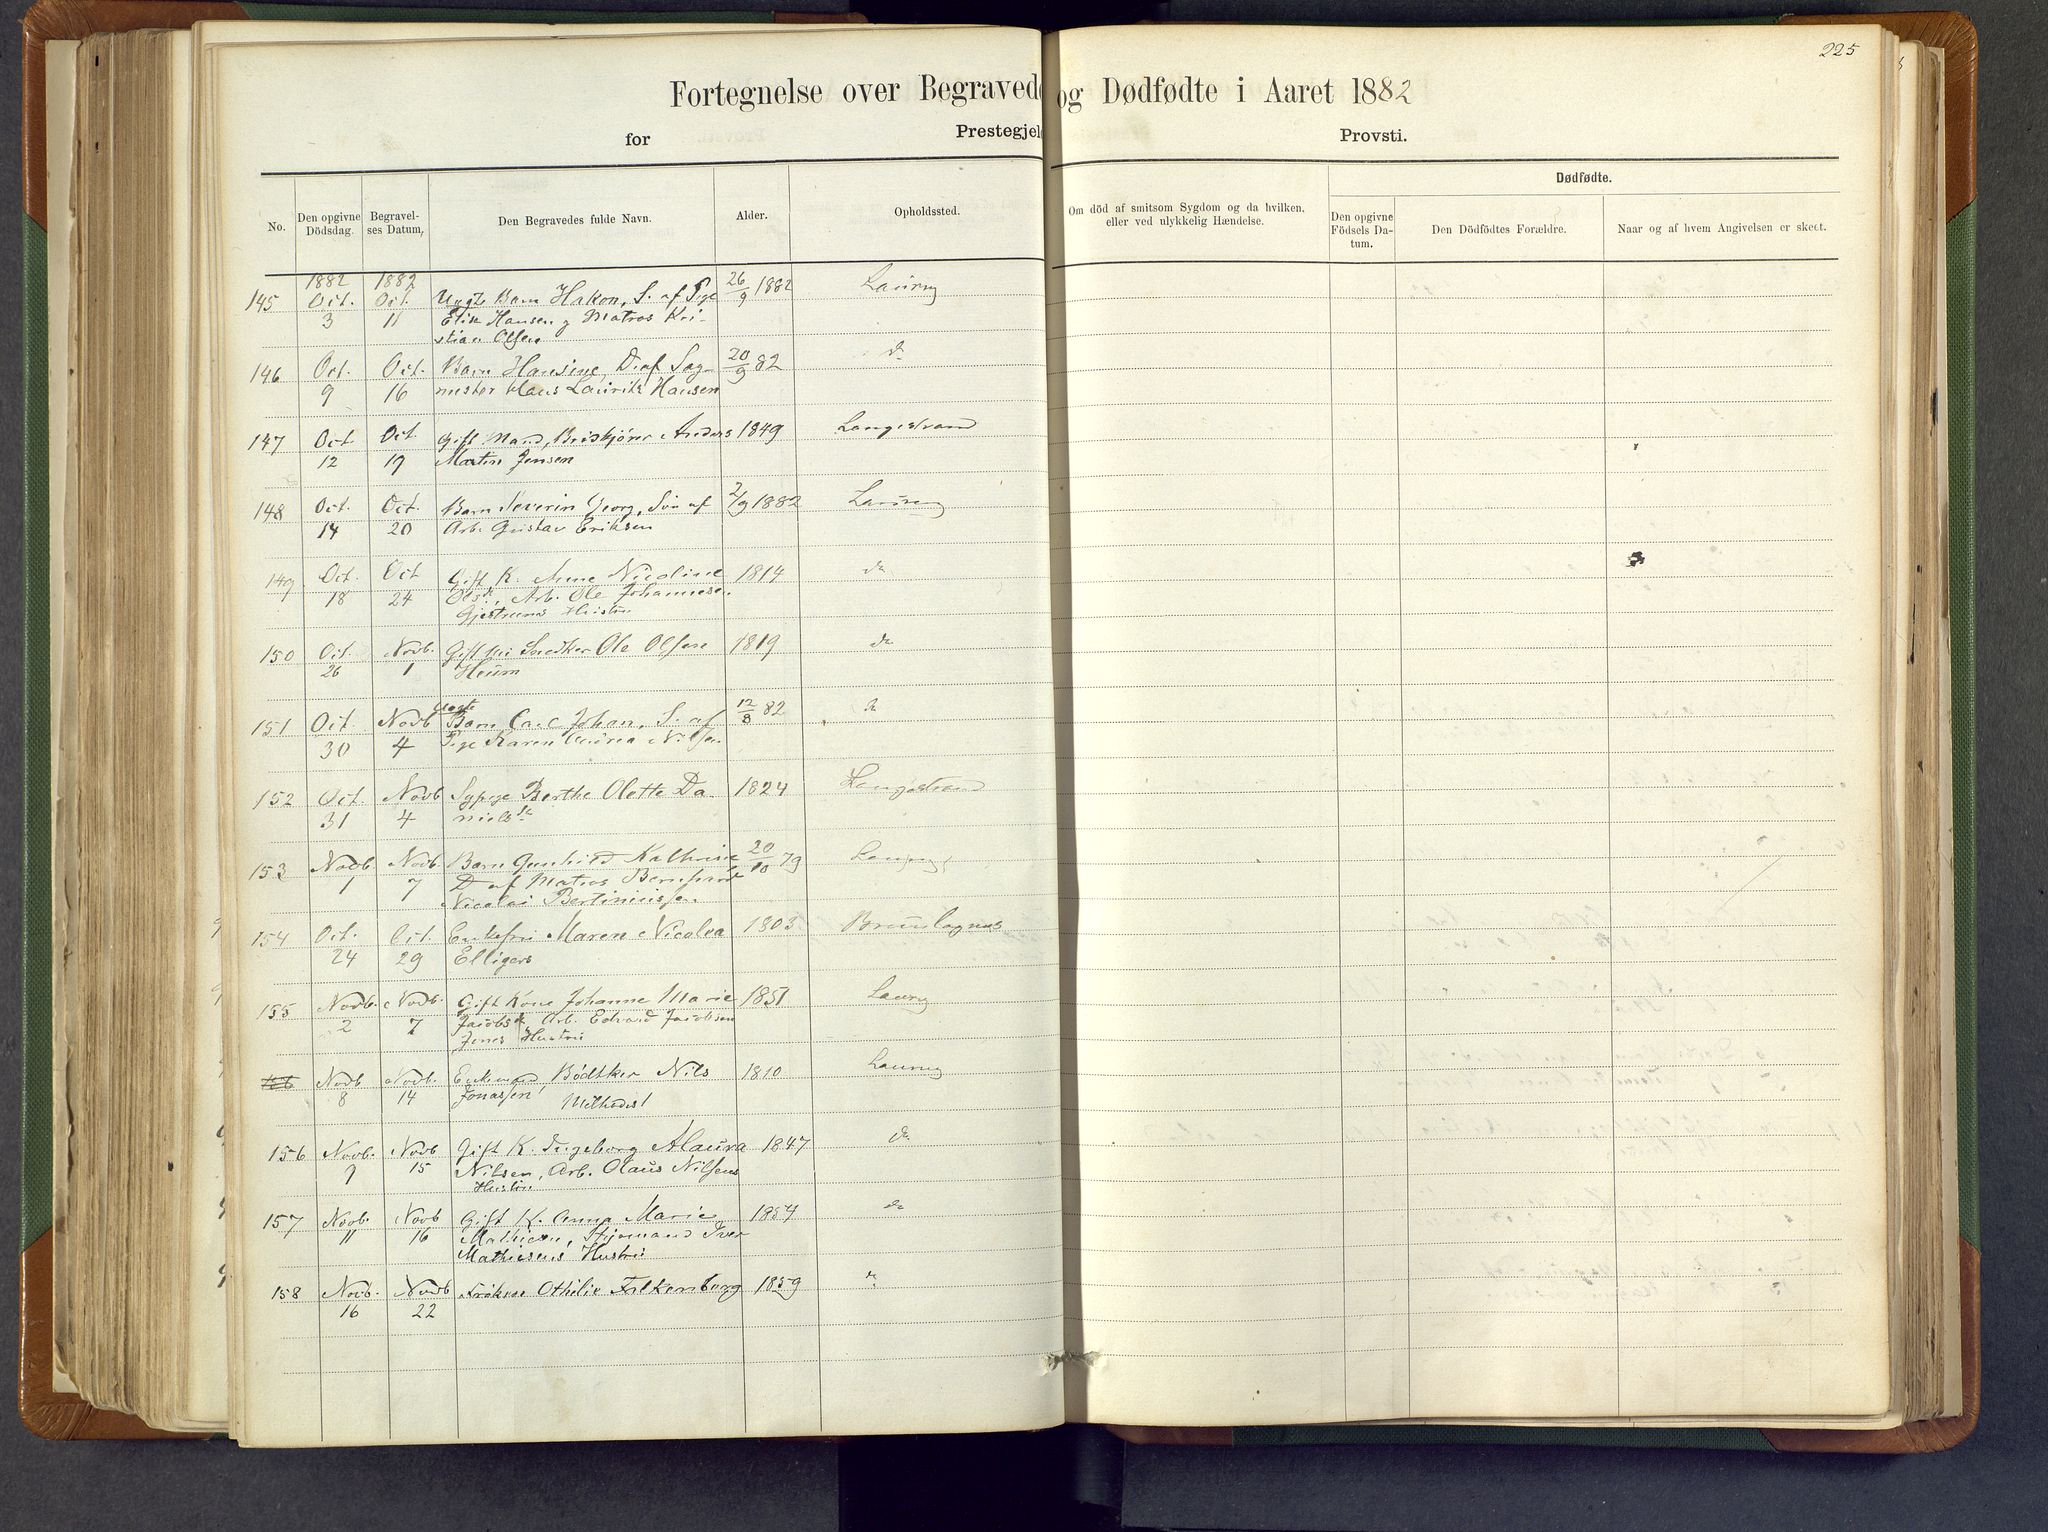 225
Fortegnelse over Begravede og Dødfødte i Aaret 1882
for Prestegjeld Provsti.
No. Den opgivne Dödsdag. Begravelses Datum, Den Begravedes fulde Navn. Alder. Opholdssted. Om död af smitsom Sygdom og da hvilken, eller ved ulykkelig Hændelse. Dødfødte.
Den opgivne Födsels Datum. Den Dödfödtes Forældre. Naar og af hvem Angivelsen er skeet.
1882 1882
145 Oct. Oct. Uægte Barn Hakon, S. af Pige 26/9 1882 Laurvig
3 11 Elise Hansen og Matros Kri-
stian Olsen
146 Oct. Oct. Barn Hansine, D. af Sag- 20/9 82 do
9 16 mester Hans Lauritz Hansen
147 Oct Oct Gift Mand, Anders 1849 Langestrand
12 19 Martin Jensen
148 Oct. Oct. Barn Severin Georg, Søn af 2/9 1882 Laurvig
14 20 Arb. Gustav Eriksen
149 Oct. Oct Gift K. Anne Nicoline 1814 do
18 24 Olsdr, Arb. Ole Johannesen
Hustru
150 Oct. Novb. Gift M Snedker Ole Olsen 1819 do
26 1 Heum
uægte
151 Oct. Novb Barn Carl Johan, S. af 12/8 82 do
30 4 Pige Karen Nilsen
152 Oct Novb Sypige Berthe Olette Da- 1824 Langestrand
31 4 nielsdr
153 Novb Novb. Barn Gunhild Kathrine 20/10 79 Laurvig
1 7 D af Matros Bernhard
Nicolai Bertiniussen
154 Oct. Oct. Enkefru Maren Nicolea 1803 Brunlagnes
24 29 Elligers
155 Novb. Novb. Gift Kone Johanne Marie 1851 Laurvig
2 7 Jacobsdr, Arb. Edvard Jacobsen
Hustru
156 Novb Novb. Enkemand, Bødtker Nils 1810 Laurvig
8 14 Jonassen, Methodist
156 Novb. Novb Gift K. Ingeborg Alaura 1847 do
9 15 Nilsen, Arb. Olaus Nilsens
Hustru
157 Novb. Novb Gift K. Anna Marie 1854 do
11 16 Mathisen, Styrmand Iver
Mathisens Hustru
158 Novb. Novb Frøken Othilie Falkenberg 1859 do
16 22